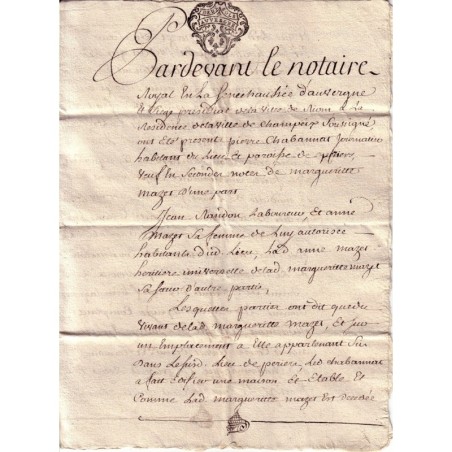 Pardevant le notaire
Royal En La senechaussée d'auvergne
et siege presidial de la ville de Riom a la
Residence de la ville de Champeix soussigné
ont été presents pierre Chabannat journalier
habitant du Lieu et paroisse de
veuf En secondes noces de margueritte
mazet d'une part
Jean Randon Laboureur, Et anne
mazet sa femme de Luy autorisée
habitants d'ud. Lieu, Lad. anne mazet
heritiere universelle de lad. margueritte mazet
sa sœur d'autre partie,
Lesquelles parties ont dit que du
vivant de lad. margueritte mazet, Et sur
un Emplacement a Elle appartenant sis
dans Led. Lieu de periere, Led. Chabannat
a fait Edifier une maison Et Etable Et
Comme Lad. margueritte mazet Est decedée